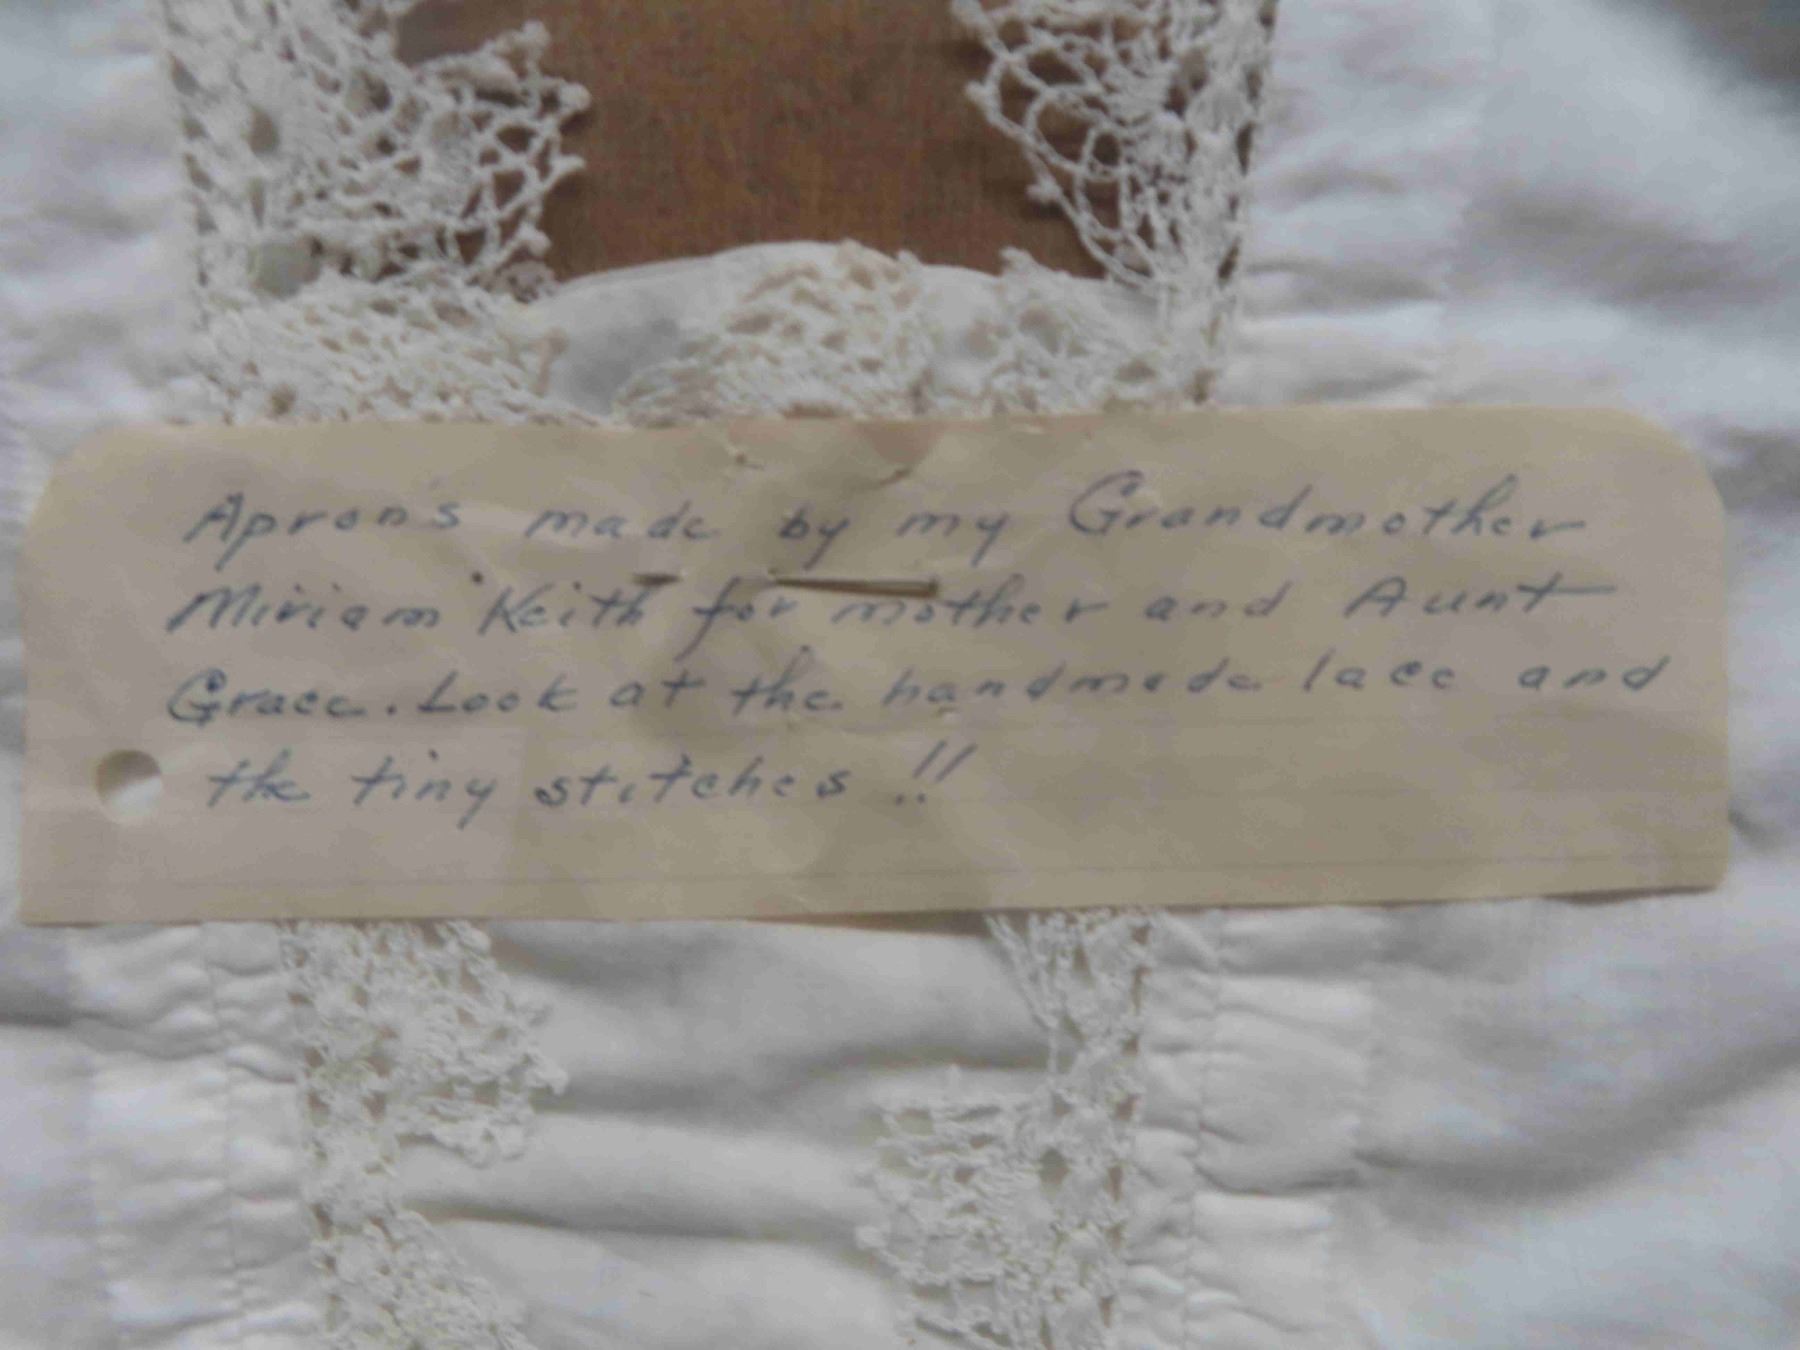 Apron's made by my Grandmother
Miriam Keith for mother and Aunt
Grace. Look at the handmade lace and
the tiny stitches !!